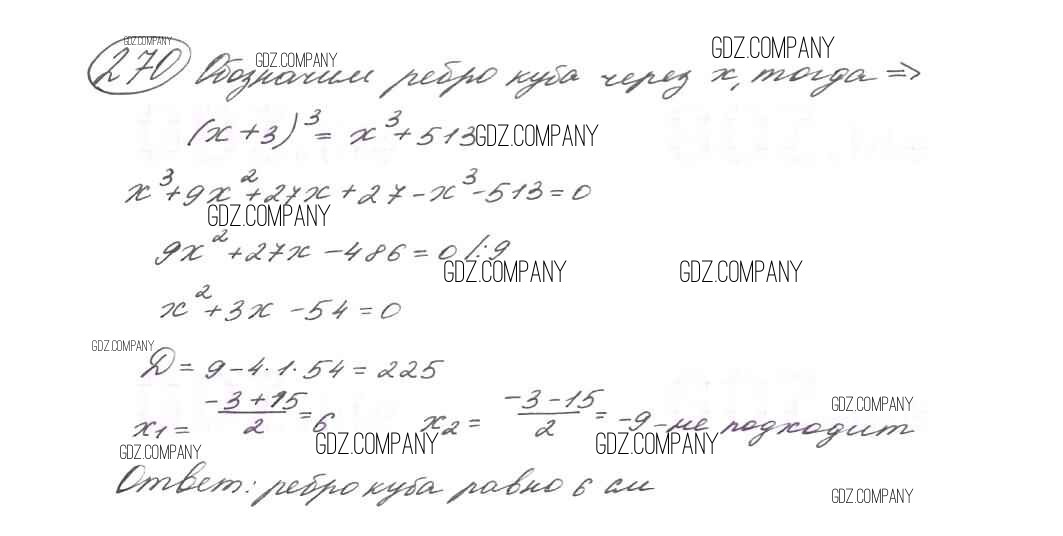 GDZ.COMPANY
270 Обозначим ребро куба через x, тогда =>
GDZ.COMPANY GDZ.COMPANY
(x+3)³ = x³+513 GDZ.COMPANY
x³+9x²+27x+27-x³-513=0
GDZ.COMPANY
9x²+27x-486=0 /:9
GDZ.COMPANY GDZ.COMPANY
x²+3x-54=0
GDZ.COMPANY
D=9-4·1·54=225
x₁ = (-3+15)/2 = 6 x₂ = (-3-15)/2 = -9 - не подходит
GDZ.COMPANY
GDZ.COMPANY GDZ.COMPANY GDZ.COMPANY
Ответ: ребро куба равно 6 см
GDZ.COMPANY